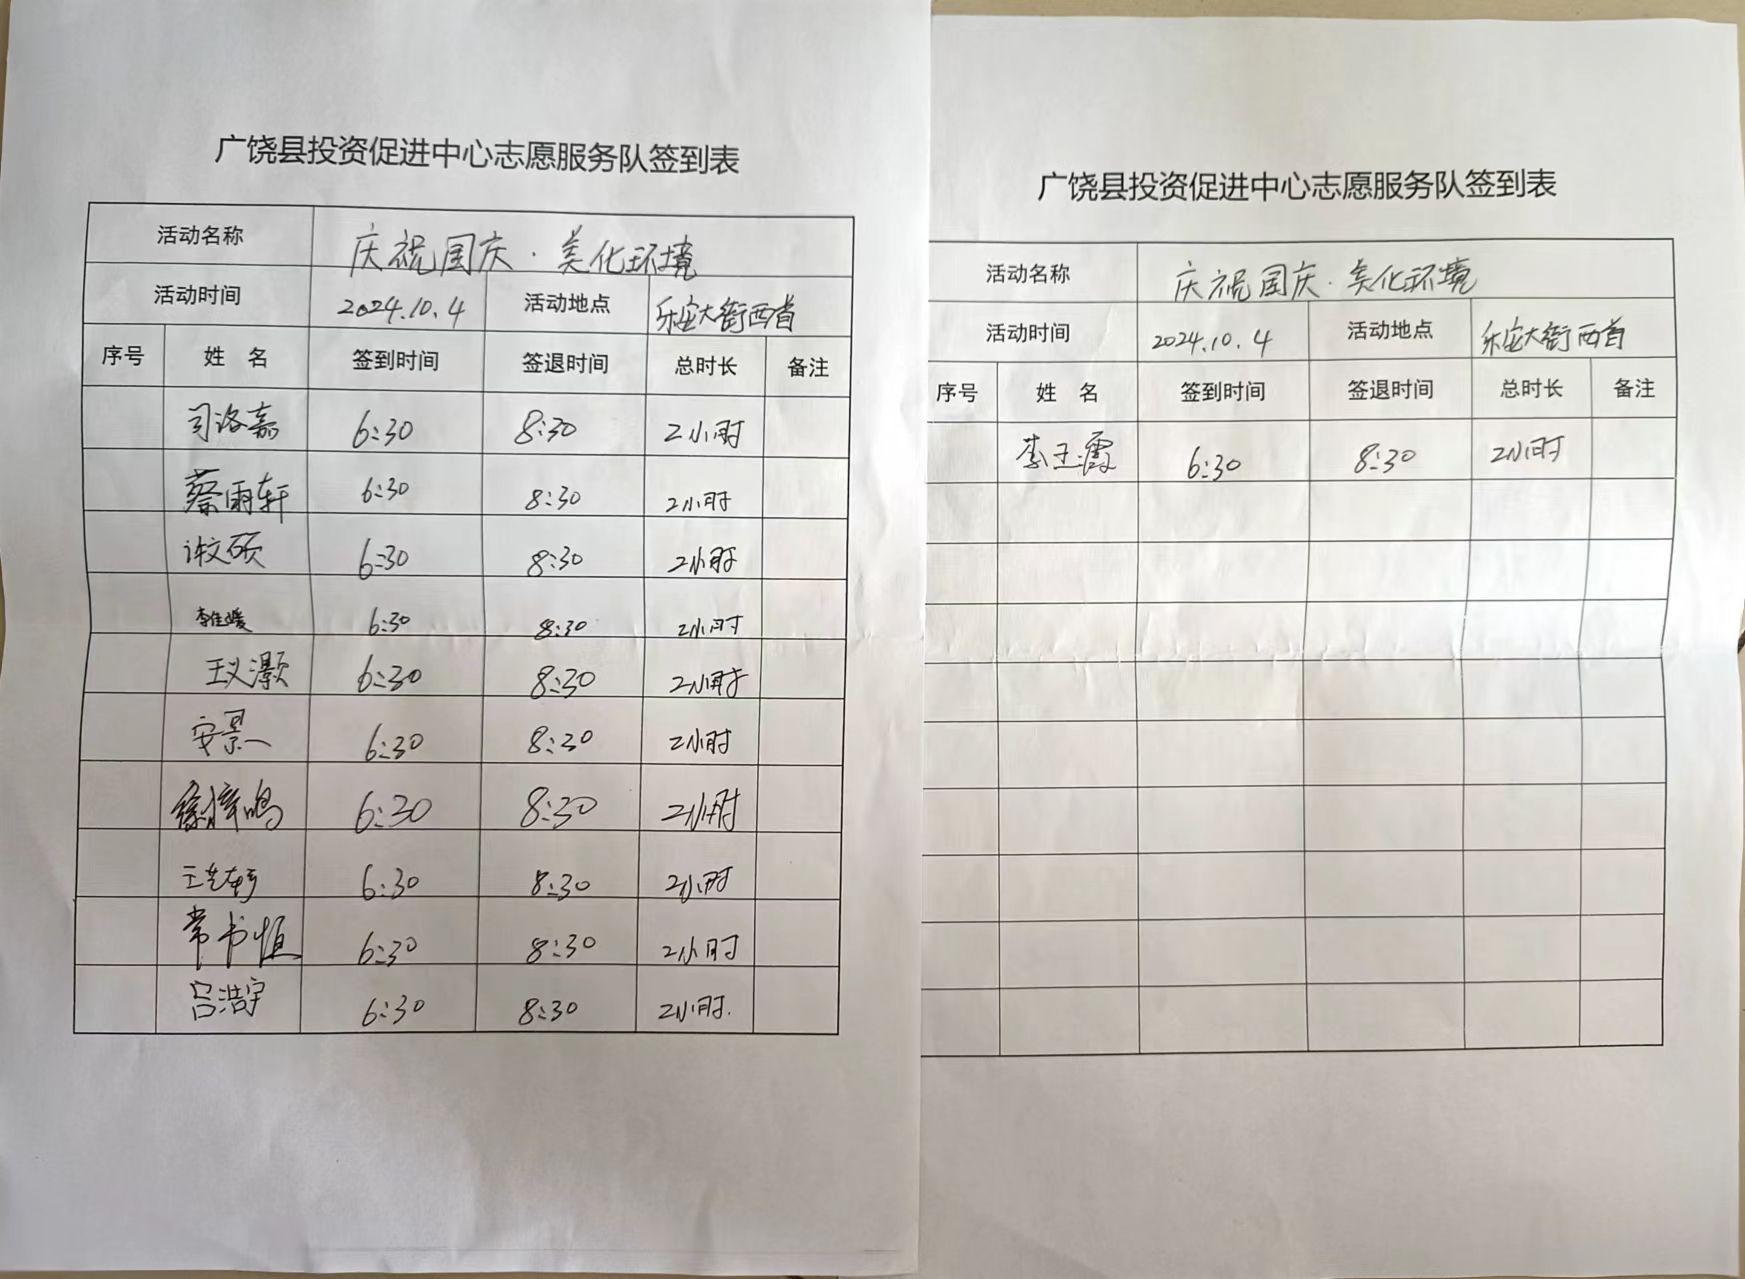 广饶县投资促进中心志愿服务队签到表
活动名称 庆祝国庆·美化环境
活动时间 2024.10.4 活动地点 乐安大街西首
序号 姓 名 签到时间 签退时间 总时长 备注
司洛嘉 6:30 8:30 2小时
蔡雨轩 6:30 8:30 2小时
谢文硕 6:30 8:30 2小时
李佳媛 6:30 8:30 2小时
王义灏 6:30 8:30 2小时
安景一 6:30 8:30 2小时
徐梓鸣 6:30 8:30 2小时
王艺轲 6:30 8:30 2小时
常书恒 6:30 8:30 2小时
吕浩宇 6:30 8:30 2小时.
广饶县投资促进中心志愿服务队签到表
活动名称 庆祝国庆·美化环境
活动时间 2024.10.4 活动地点 乐安大街西首
序号 姓 名 签到时间 签退时间 总时长 备注
李玉霞 6:30 8:30 2小时